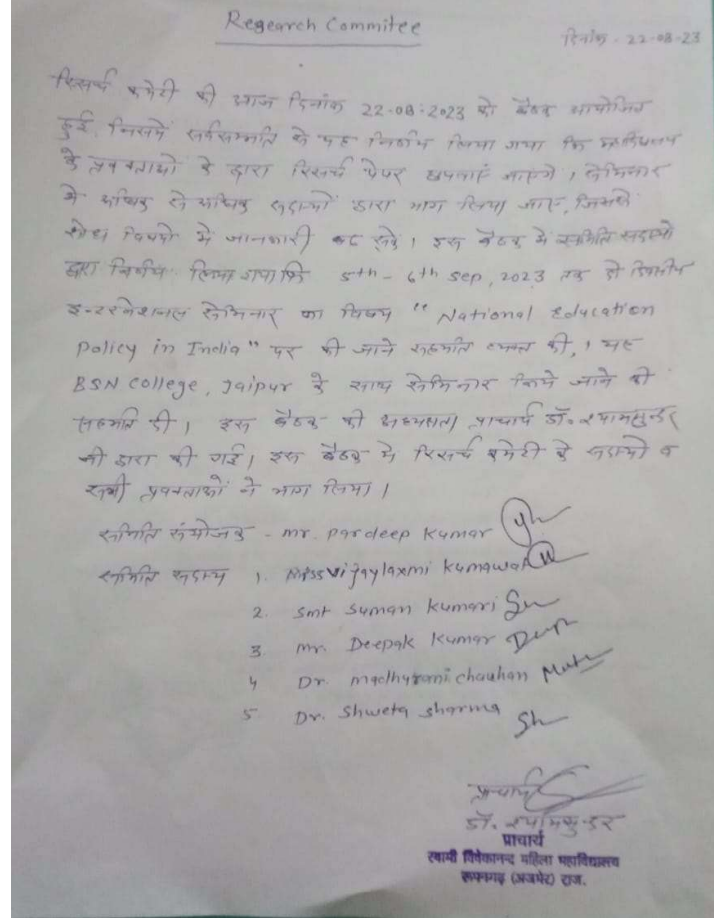 Research Commitee
दिनांक - 22-08-23
रिसर्च कमेटी की आज दिनांक 22-08-2023 को बैठक आयोजित
हुई, जिसमें सर्वसम्मति से यह निर्णय लिया गया कि महाविद्यालय
के प्रवक्ताओं के द्वारा रिसर्च पेपर छपवाएं जाएंगे। सेमिनार
में अधिक से अधिक सदस्यों द्वारा भाग लिया जाए, जिससे
शोध विषयों में जानकारी बढ़ सके। इस बैठक में समिति सदस्यों
द्वारा निर्णय लिया गया कि 5th - 6th Sep, 2023 तक दो दिवसीय
इन्टरनेशनल सेमिनार का विषय "National Education
Policy in India" पर की जाने सहमति व्यक्त की, । यह
BSN College, Jaipur के साथ सेमिनार किये जाने की
सहमति दी। इस बैठक की अध्यक्षता प्राचार्य डॉ. श्यामसुन्दर
जी द्वारा की गई। इस बैठक में रिसर्च कमेटी के सदस्यों व
सभी प्रवक्ताओं ने भाग लिया।
समिति संयोजक - Mr. Pardeep Kumar
समिति सदस्य 1. Miss Vijaylaxmi Kumawat
2. Smt Suman Kumari
3. Mr. Deepak Kumar
4 Dr. Madhurani Chauhan
5 Dr. Shweta Sharma
प्राचार्य
डॉ. श्यामसुन्दर
प्राचार्य
स्वामी विवेकानन्द महिला महाविद्यालय
रूपनगढ़ (अजमेर) राज.